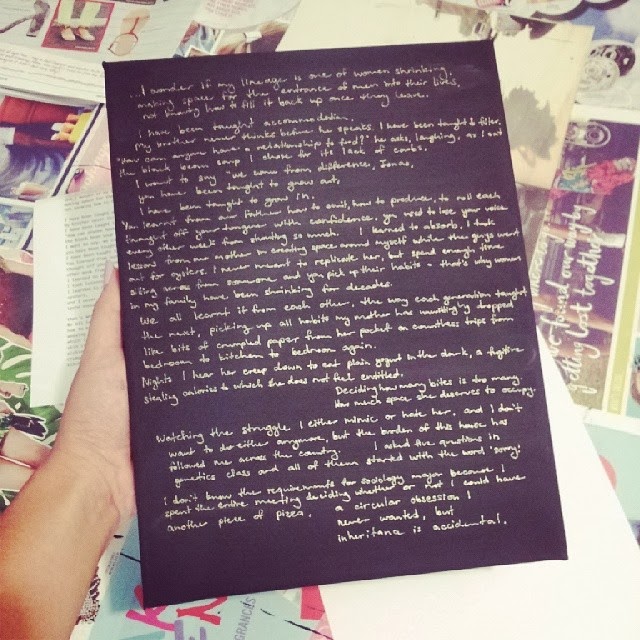 I wonder if my lineage is one of women shrinking
making space for the entrance of men into their lives,
not knowing how to fill it back up once they leave.
I have been taught accommodation.
My brother never thinks before he speaks. I have been taught to filter.
"How can anyone have a relationship to food?" he asks, laughing, as I eat
the black bean soup I chose for its lack of carbs.
I want to say "we come from difference, Jonas,
you have been taught to grow out,
I have been taught to grow in."
You learnt from our father how to emit, how to produce, to roll each
thought off your tongue with confidence, you used to lose your voice
every other week from shouting so much. I learned to absorb. I took
lessons from our mother in creating space around myself while the guys went
out for oysters. I never meant to replicate her, but spend enough time
sitting across from someone and you pick up their habits - that's why women
in my family have been shrinking for decades.
We all learnt it from each other, the way each generation taught
the next, picking up all habits my mother has unwittingly dropped
like bits of crumpled paper from her pocket on countless trips from
bedroom to kitchen to bedroom again.
Nights I hear her creep down to eat plain yogurt in the dark, a fugitive
stealing calories to which she does not feel entitled.
Deciding how many bites is too many
How much space she deserves to occupy.
Watching the struggle I either mimic or hate her, and I don't
want to do either anymore, but the burden of this house has
followed me across the country. I asked five questions in
genetics class and all of them started with the word "sorry"
I don't know the requirements for sociology major because I
spent the entire meeting deciding whether or not I could have
another piece of pizza. a circular obsession I
never wanted, but
inheritance is accidental.
we found our way by
getting lost together